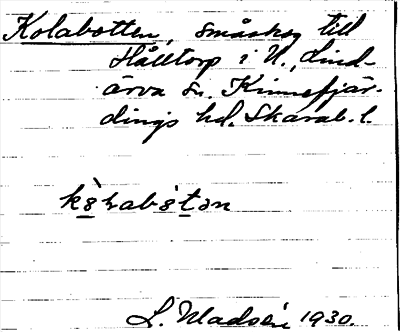 Kolabotten, småskog till
Hålltorp i N., Lind-
ärva sn. Kinnefjär-
dings hd. Skarab. l.
kò̤ɽabò̤tən
L. Madsén 1930.